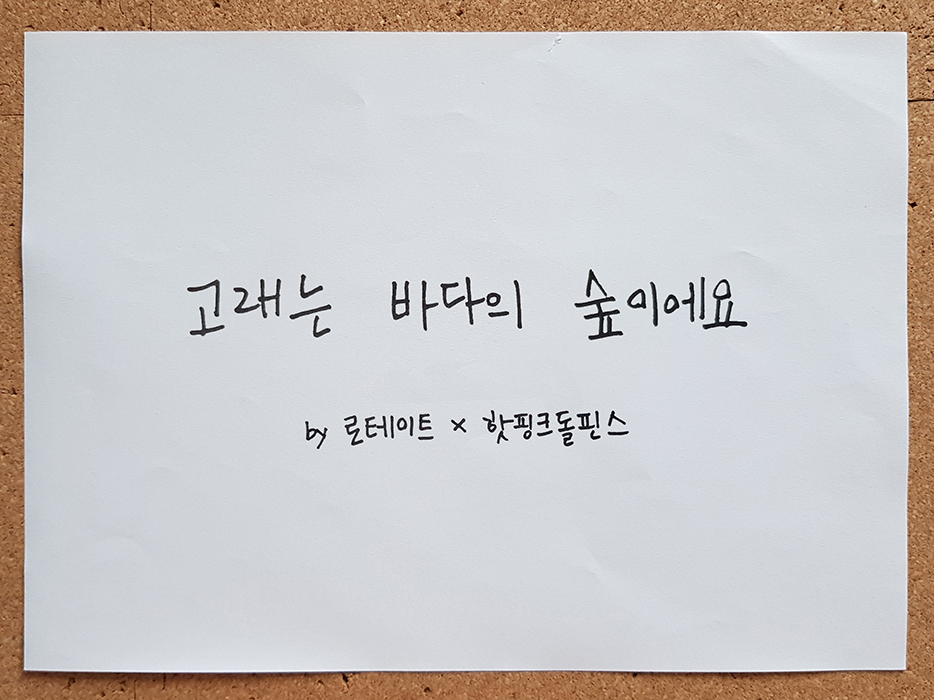 고래는 바다의 숲이에요
by 로테이트 × 핫핑크돌핀스